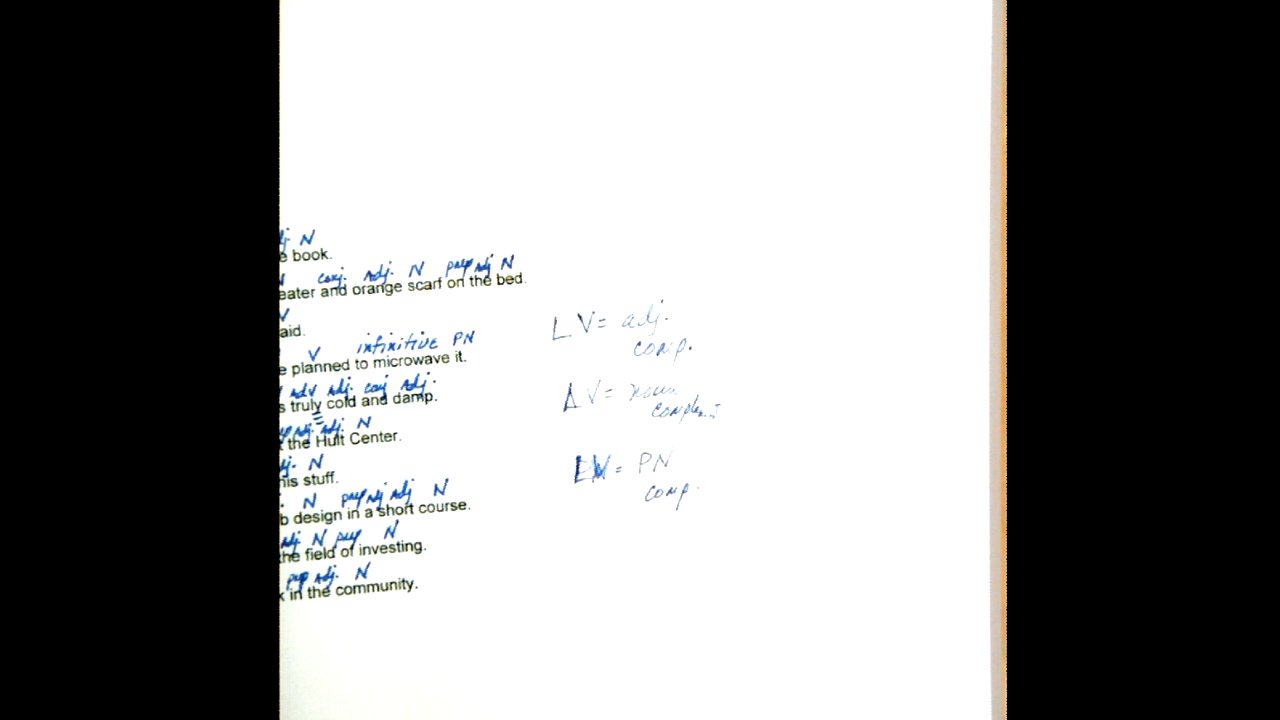 adj. N
e book.
N conj. adj. N prep adj N
eater and orange scarf on the bed.
V
aid.
V infinitive PN
e planned to microwave it.
adv adj. conj adj.
s truly cold and damp.
adj. N
the Hult Center.
adj. N
his stuff.
N prep adj adj N
b design in a short course.
adj N prep N
the field of investing.
prep adj. N
k in the community.
LV = adj.
comp.
V = noun
LV = PN
comp.